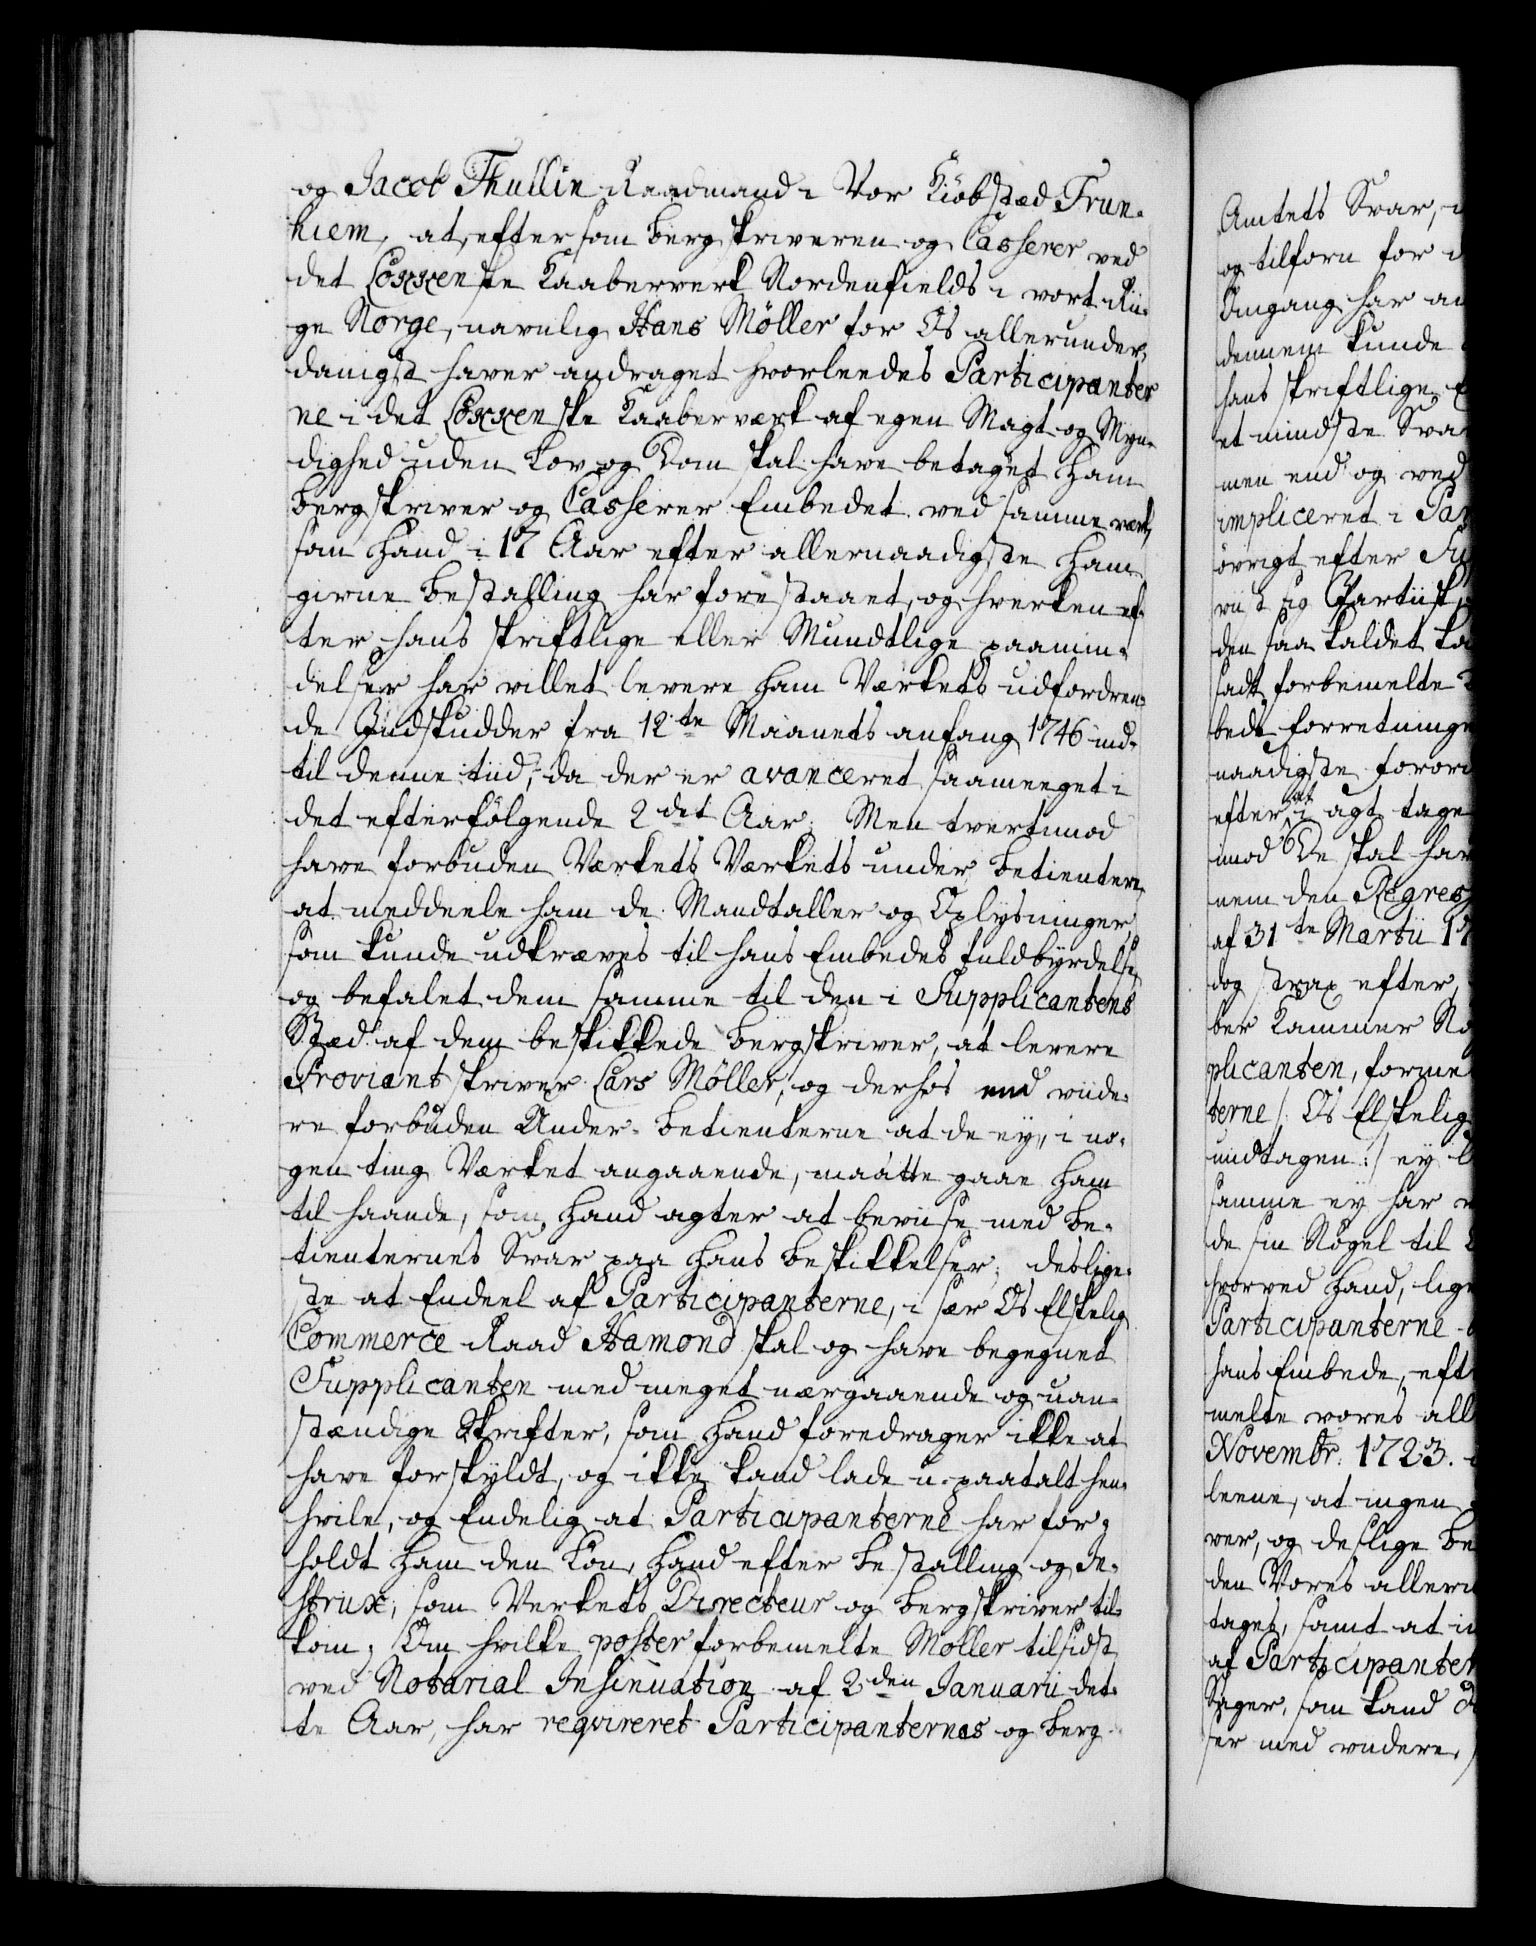 og Jacob Thullin Raadmand i Vor Kiöbstæd Trun-
hiem, at, eftersom bergskriveren og Casserer ved
det Løkkenske Kaaberverk Nordenfields i vort Rii-
ge Norge, navnlig Hans Möller for Os allerunder-
danigst haver andraget hvorleedes Participanter
ne i det Løkkenske Kaaberværk af egen Magt og Myn-
dighed uden Lov og Dom skal have betaget ham
bergskriver og Casserer Embedet ved samme værk,
som hand i 17 Aar efter allernaadigste ham
givne bestalling har forestaaet, og hverken ef-
ter hans skriftlige eller Mundtlige paamin-
delser har villet levere ham Værkets udfordren-
de Indskudder fra 12te Maanets anfang 1746 ind-
til denne tiid, da der er avanceret saameeget i
det efterfölgende 2det Aar; Men tvertimod
have forbuden Værkets Værkets under betientere,
at meddeele ham de Mandtaller og Oplysninger,
som kunde udkræves til hans Embedes fuldbyrdelse,
og befalet dem samme til den i Supplicantens
Stæd af dem beskikkede bergskriver, at levere
Proviantskriver Lars Möller, og derhos end viide-
re forbuden Under-betienterne at de ey, i no-
gen ting Værket angaaende, maatte gaae ham
til haande, som hand agter at beviise med be-
tienternes Svar paa hans beskikkelser; deslige-
ste at Endeel af Participanterne, i sær Os Elskelig
Commerce Raad Hamond skal og have begegnet
Supplicanten med meget nærgaaende og uan-
stændige Skrifter, som hand foredrager ikke at
have forskyldt, og ikke kand lade u-paatalt hen-
hvile, og Endelig at Participanterne har for-
holdt ham den Lön, hand efter bestalling og In-
strux, som Verkets Directeur og bergskriver til-
kom; Om hvilke poster forbemelte Möller tilsidst
ved Notarial Insinuation af 2den Januarii det-
te Aar, har reqvireret Participanternes og berg
Amtets Svar, i
og tilforn for
Omgang har
dennem kunde
hans skriftlige
et mindste Sva
men end og ved
impliceret i Par
övrigt efter Sup
viist sig Partiisk
den saa kaldet
sadt forbemelte
bedt forretninge
naadigste foror
efter at i agt tage
imod De skal hav
nem den Regres
af 31te Martii 17
dog strax efter
ber Kammer
plicanten, forme
terne /: Os Elskelig
undtagen :/ ey
samme ey har
de sin Nögel til
hvorved hand, lige
Participanterne
hans Embede, eft
melte vores all
Novembr. 1723.
leene, at ingen
ver, og deslige be
den Vores aller
tages, samt at in
af Participanter
Sager, som kand
ser med viidere.